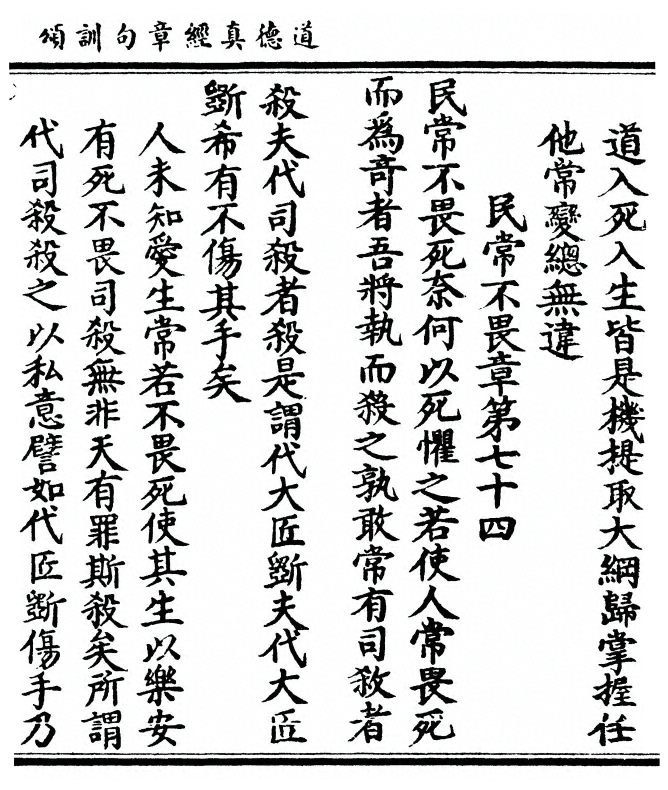 道德真經章句訓頌
道入死入生皆是機提取大綱歸掌握任
他常變總無違
民常不畏章第七十四
民常不畏死奈何以死懼之若使人常畏死
而爲奇者吾將執而殺之孰敢常有司殺者
殺夫代司殺者殺是謂代大匠斲夫代大匠
斲希有不傷其手矣
人未知愛生常若不畏死使其生以樂安
有死不畏司殺無非天有罪斯殺矣所謂
代司殺殺之以私意譬如代匠斲傷手乃